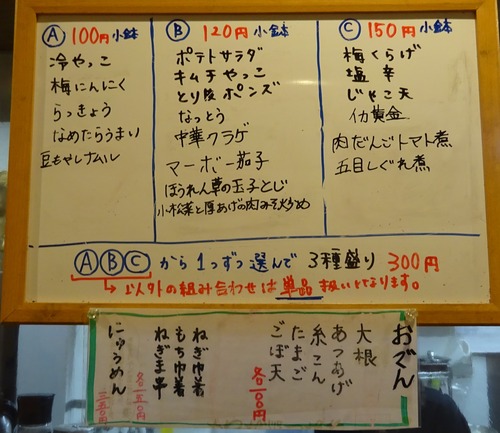 Ⓐ 100円 小鉢
冷やっこ
梅にんにく
らっきょう
なめたらうまい
豆もやしナムル
Ⓑ 120円 小鉢
ポテトサラダ
キムチやっこ
とり皮ポンズ
なっとう
中華クラゲ
マーボー茄子
ほうれん草の玉子とじ
小松菜と厚あげの肉みそ炒め
Ⓒ 150円 小鉢
梅くらげ
塩辛
じゃこ天
イカ黄金
肉だんごトマト煮
五目しぐれ煮
ⒶⒷⒸから1つずつ選んで 3種盛り 300円
→以外の組み合わせは単品扱いとなります。
おでん
大根
あつあげ
糸こん
たまご
ごぼ天
ねぎ巾着
もち巾着
ねぎま串
にゅうめん